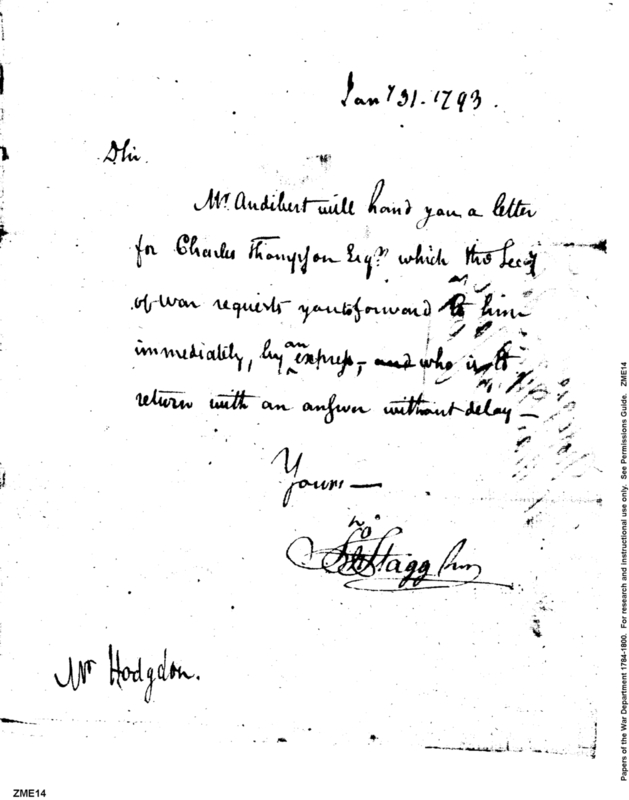 Jany 31. 1793.
Sir.
Mr. Audibert will hand you a letter
for Charles Thompson Esqr. which the Secy
of War requests you to forward to him
immediately, by an express, and who is to
return with an answer without delay —
Yours —
Jno Stagg Jun
Mr Hodgdon.
Papers of the War Department 1784-1800. For research and instructional use only. See Permissions Guide. ZME14
ZME14